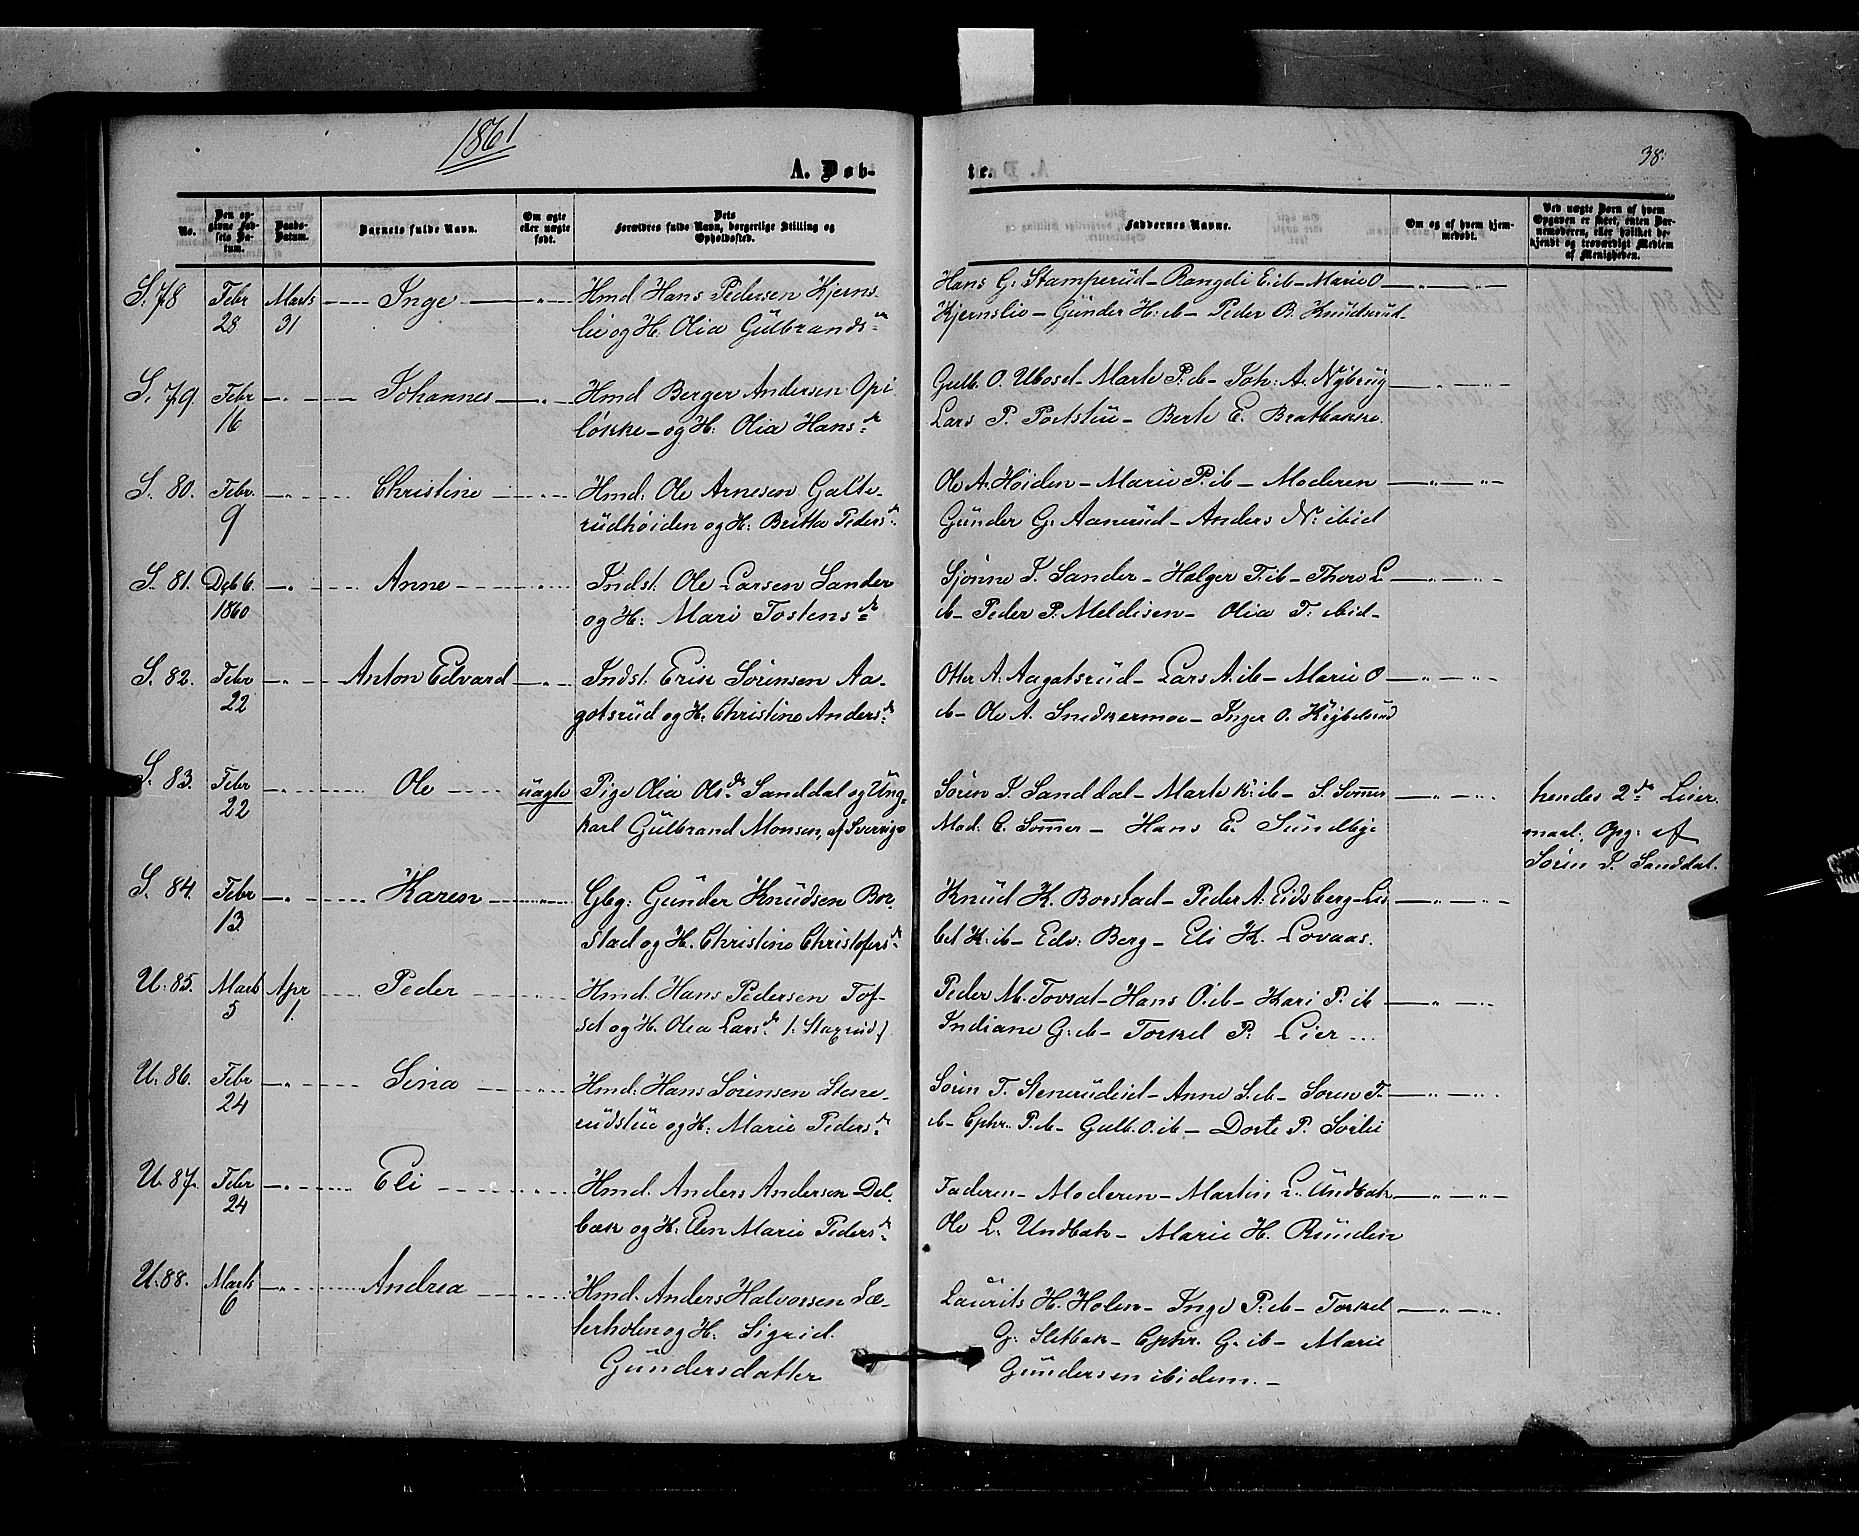 1861
A. Døb-
te.
38.
No.
Den op-
givne Fød-
sels Da-
tum.
Daabs-
Datum.
Barnets fulde Navn.
Om ægte
eller uægte
født.
Dets
Forældres fulde Navn, borgerlige Stilling og
Opholdssted.
Faddernes Navne.
Om og af hvem hjem-
medøbt.
Ved uægte Børn af hvem
Opgaven er skeet, enten Bar-
nemoderen, eller hvilket be-
kjendt og troværdigt Medlem
af Menigheden.
S. 78 Febr 28 Marts 31 Inge Hmd Hans Pedersen Kjerns-
lie og H. Olia Gulbrandsdr
Hans G. Stamperud - Rangdi E. ib - Marie O
Kjernslie - Gunder H. ib - Peder B. Knudsrud -
S. 79. Febr 16 Johannes Hmd Berger Andersen Opi
løkke - og H: Olia Hansdr
Gulb. O. Ulvset - Marte P. ib - Joh: A. Nybrug
Lars P. Portstue - Berte E. Bratbakke.
S. 80. Febr. 9 Christine Hmd: Ole Arnesen Galte-
rudhøiden og H. Britta Pedersdr
Ole A. Høiden - Marie P. ib - Moderen
Gunder G. Aanerud - Anders N: ibid
S. 81. Deb 6. 1860 Anne Indst. Ole Larsen Sander
og H: Mari Tostensdr
Sjønne I. Sander - Holger T. ib - Thore L
ib - Peder P. Meldisen - Olia T. ibid -
S. 82. Febr 22 Anton Edvard Indst: Erik Sørensen Aa-
gotsrud og H: Christine Andersdr
Otter A. Aagotsrud - Lars A. ib - Marie O
ib - Ole A. Snedkermoe - Inger O. Kybelsrud
S. 83. Febr 22 Ole uægte Pige Olia Olsdr Sanddal og Ung-
karl Gulbrand Monsen, af Sverrige
Søren I. Sanddal - Marte K. ib - S. Sommer
Mad: C. Sommer - Hans E. Sundbye
hendes 2det Leier
maal. Opg: af
Søren I. Sanddal.
S. 84. Febr 13 Karen Gbg: Gunder Knudsen Bor-
stad og H. Christine Christofersdr
Knud K. Borstad - Peder A. Eidsberg - Lis
bet K: ib - Edv: Berg - Eli K. Lovaas.
U. 85. Marts 5 Apr 1. Peder Hmd. Hans Pedersen Tof-
set og H. Olia Larsdr /: Staxrud /
Peder M. Tovsat - Hans O. ib - Kari P. ib
Indiane G: ib - Torkel P. Lier
U. 86. Febr 24 Sina Hmd: Hans Sørensen Stene-
rudstue og H: Marie Pedersdr
Søren T. Stenerudeiet - Anne S. ib - Soren T.
ib - Cphr. P. ib - Gulb. O. ib - Dorte P. Sorlie
U. 87. Febr 24 Eli Hmd. Anders Andersen Del-
bak og H. Elen Marie Pedersdr
Faderen - Moderen - Martin L. Undbak
Ole L. Undbak - Marie H. Runden
U. 88. Marts 6 Andrea Hmd. Anders Halvorsen Sæ-
terholen og H: Sigrid
Gundersdatter
Laurits H. Holen - Inge P. ib - Torkel
G: Sletbak - Cphr. G. ib - Marie
Gundersen ibidem. -